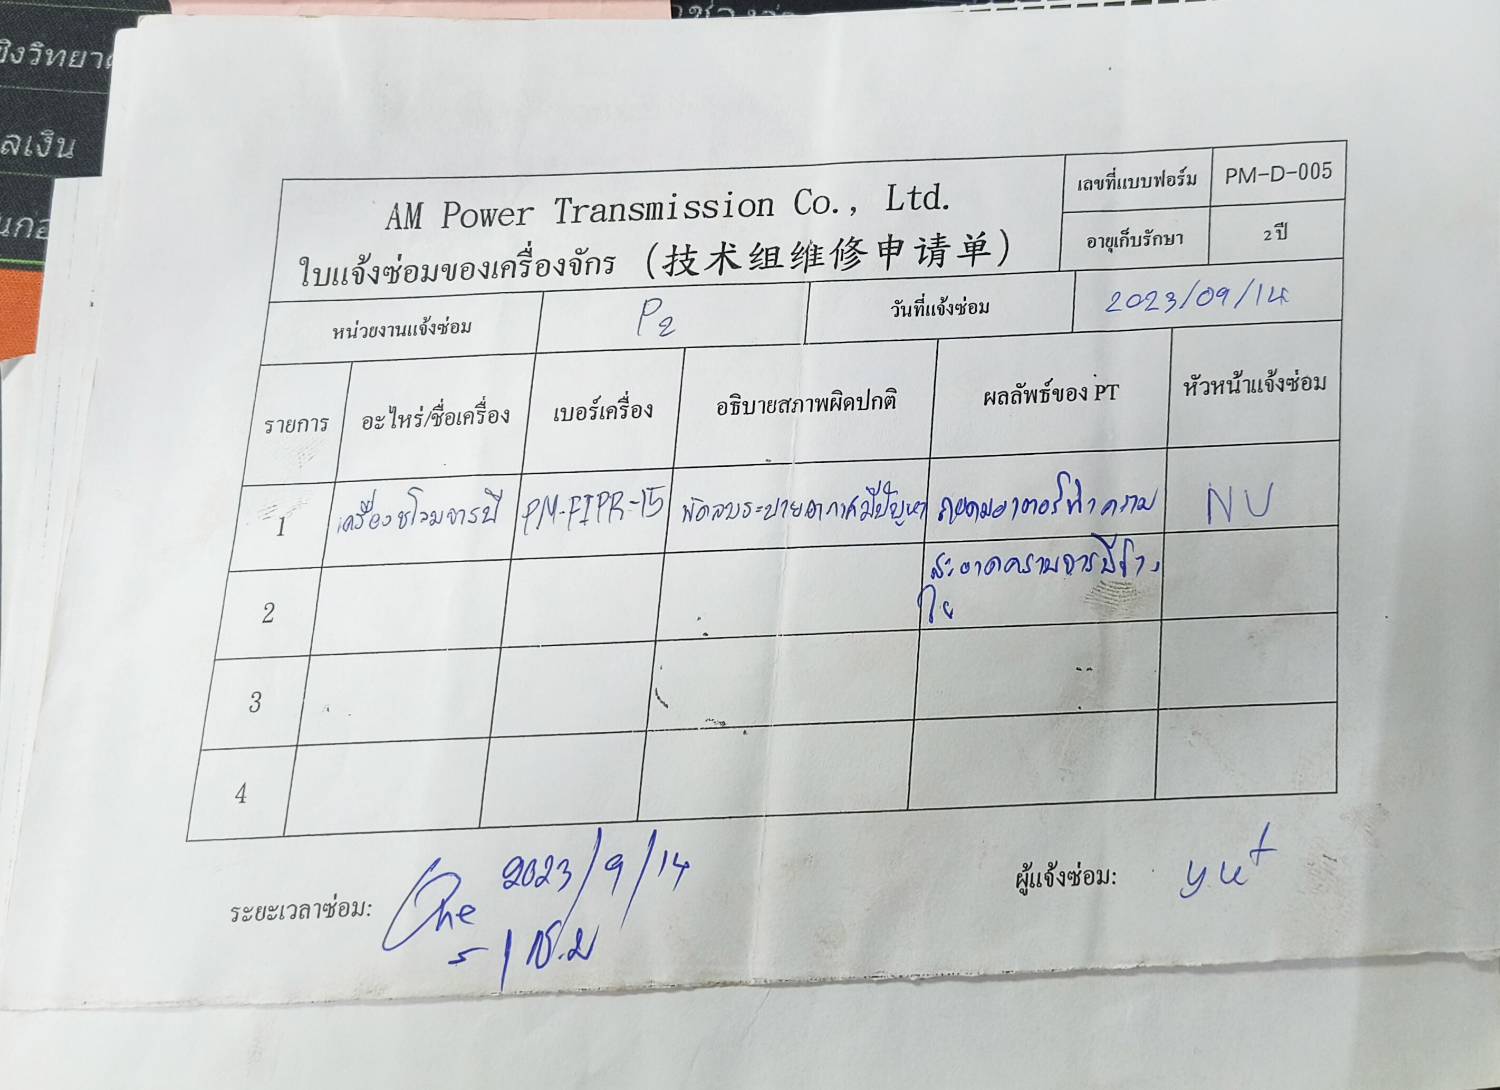 ชิงวิทยา
ลเงิน
AM Power Transmission Co., Ltd.
ใบแจ้งซ่อมของเครื่องจักร (技术组维修申请单)
เลขที่แบบฟอร์ม PM-D-005
อายุเก็บรักษา 2 ปี
หน่วยงานแจ้งซ่อม P2 วันที่แจ้งซ่อม 2023/09/14
รายการ อะไหร่/ชื่อเครื่อง เบอร์เครื่อง อธิบายสภาพผิดปกติ ผลลัพธ์ของ PT หัวหน้าแจ้งซ่อม
1 เครื่องชโลมจารบี PM-FIPR-15 พัดลมระบายอากาศมีปัญหา ถอดมอเตอร์ทำความ NU
สะอาดคราบจารบี
2
3
4
ระยะเวลาซ่อม: One 2023/9/14
1 ช.ม
ผู้แจ้งซ่อม: yut